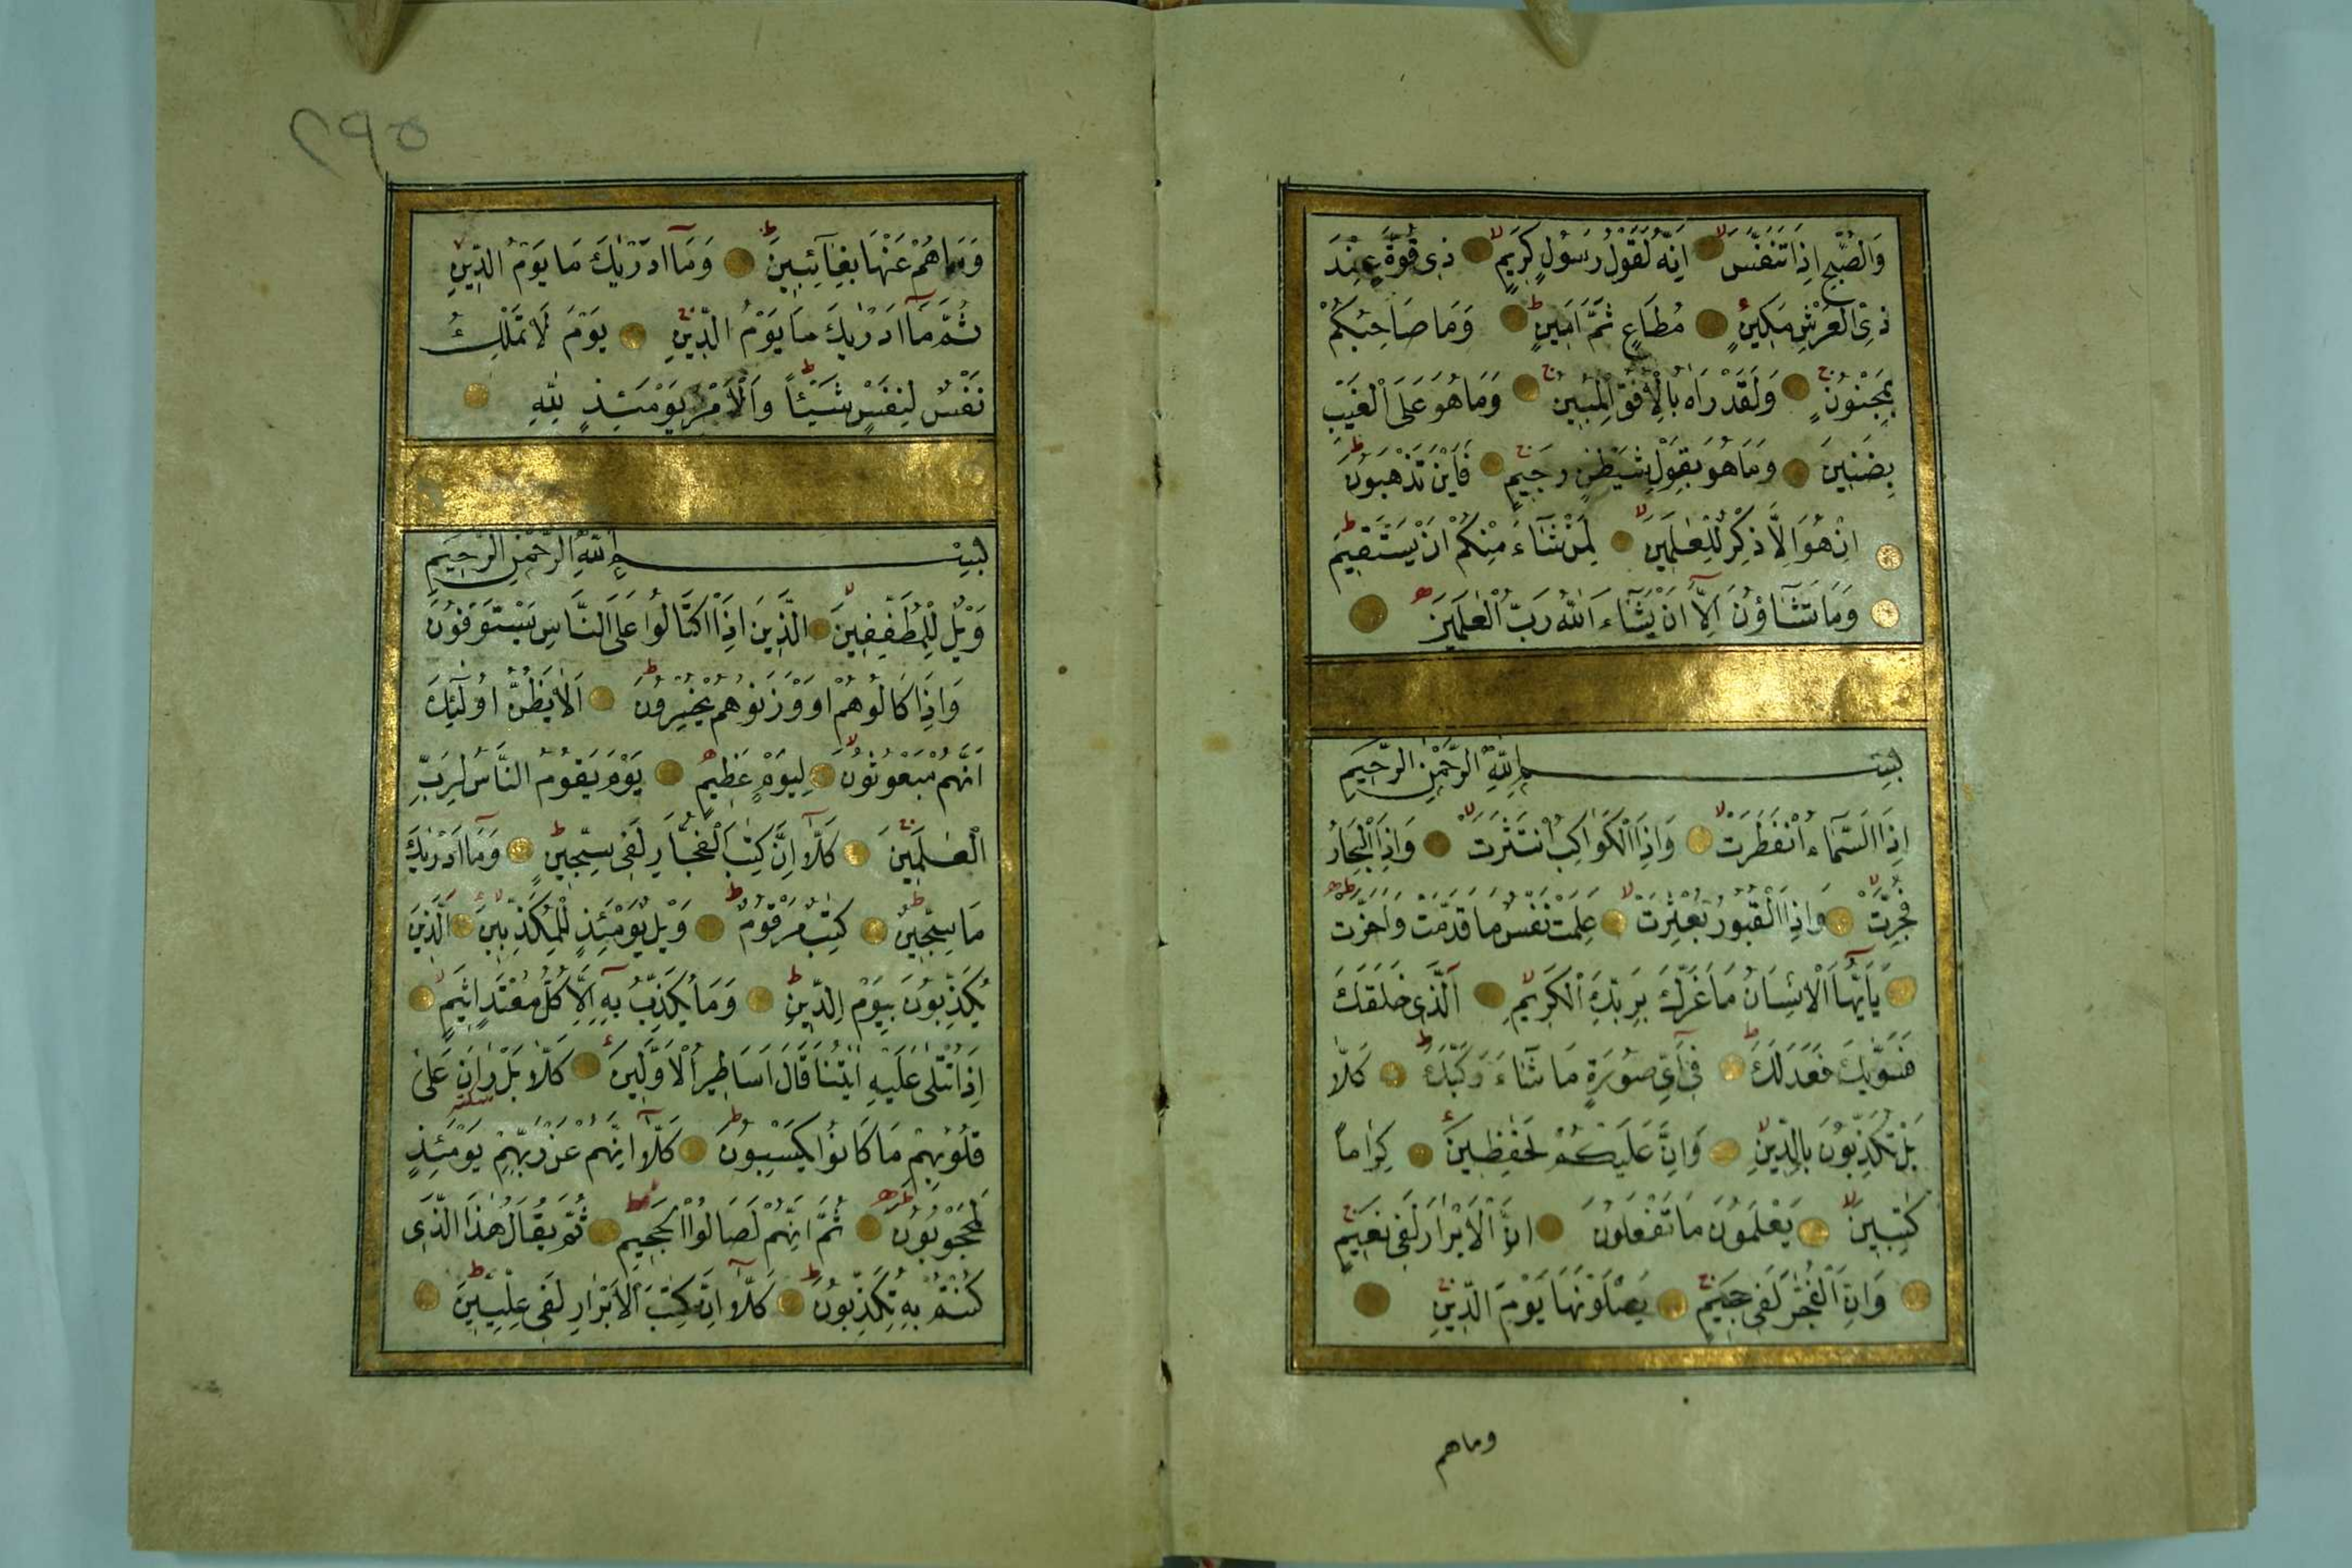 وَالصُّبْحِ اِذَا تَنَفَّسَ لا اِنَّهُ لَقَوْلُ رَسُولٍ كَرِيمٍ لا ذِى قُوَّةٍ عِنْدَ
ذِى الْعَرْشِ مَكِينٍ مُطَاعٍ ثَمَّ اَمِينٍ ط وَمَا صَاحِبُكُمْ
بِمَجْنُونٍ ج وَلَقَدْ رَاٰهُ بِالْاُفُقِ الْمُبِينِ ج وَمَا هُوَ عَلَى الْغَيْبِ
بِضَنِينَ وَمَا هُوَ بِقَوْلِ شَيْطٰنٍ رَجِيمٍ ج فَاَيْنَ تَذْهَبُونَ ط
اِنْ هُوَ اِلَّا ذِكْرٌ لِلْعٰلَمِينَ لا لِمَنْ شَآءَ مِنْكُمْ اَنْ يَسْتَقِيمَ ط
وَمَا تَشَآؤُنَ اِلَّآ اَنْ يَشَآءَ اللّٰهُ رَبُّ الْعٰلَمِينَ
بِسْمِ اللّٰهِ الرَّحْمٰنِ الرَّحِيمِ
اِذَا السَّمَآءُ انْفَطَرَتْ لا وَاِذَا الْكَوَاكِبُ انْتَثَرَتْ لا وَاِذَا الْبِحَارُ
فُجِّرَتْ لا وَاِذَا الْقُبُورُ بُعْثِرَتْ لا عَلِمَتْ نَفْسٌ مَا قَدَّمَتْ وَاَخَّرَتْ ط
يَآ اَيُّهَا الْاِنْسَانُ مَا غَرَّكَ بِرَبِّكَ الْكَرِيمِ لا اَلَّذِى خَلَقَكَ
فَسَوّٰيكَ فَعَدَلَكَ ط فِىٓ اَىِّ صُورَةٍ مَا شَآءَ رَكَّبَكَ ط كَلَّا
بَلْ تُكَذِّبُونَ بِالدِّينِ لا وَاِنَّ عَلَيْكُمْ لَحٰفِظِينَ كِرَامًا
كٰتِبِينَ لا يَعْلَمُونَ مَا تَفْعَلُونَ اِنَّ الْاَبْرَارَ لَفِى نَعِيمٍ ج
وَاِنَّ الْفُجَّارَ لَفِى جَحِيمٍ ج يَصْلَوْنَهَا يَوْمَ الدِّينِ
وماهم
٢٩٥
وَمَا هُمْ عَنْهَا بِغَآئِبِينَ ط وَمَآ اَدْرٰيكَ مَا يَوْمُ الدِّينِ
ثُمَّ مَآ اَدْرٰيكَ مَا يَوْمُ الدِّينِ يَوْمَ لَا تَمْلِكُ
نَفْسٌ لِنَفْسٍ شَيْئًا ط وَالْاَمْرُ يَوْمَئِذٍ لِلّٰهِ
بِسْمِ اللّٰهِ الرَّحْمٰنِ الرَّحِيمِ
وَيْلٌ لِلْمُطَفِّفِينَ لا الَّذِينَ اِذَا اكْتَالُوا عَلَى النَّاسِ يَسْتَوْفُونَ
وَاِذَا كَالُوهُمْ اَوْ وَزَنُوهُمْ يُخْسِرُونَ ط اَلَا يَظُنُّ اُولٰٓئِكَ
اَنَّهُمْ مَبْعُوثُونَ لا لِيَوْمٍ عَظِيمٍ يَوْمَ يَقُومُ النَّاسُ لِرَبِّ
الْعٰلَمِينَ كَلَّآ اِنَّ كِتٰبَ الْفُجَّارِ لَفِى سِجِّينٍ ط وَمَآ اَدْرٰيكَ
مَا سِجِّينٌ ط كِتٰبٌ مَرْقُومٌ ط وَيْلٌ يَوْمَئِذٍ لِلْمُكَذِّبِينَ لا اَلَّذِينَ
يُكَذِّبُونَ بِيَوْمِ الدِّينِ ط وَمَا يُكَذِّبُ بِهٖٓ اِلَّا كُلُّ مُعْتَدٍ اَثِيمٍ لا
اِذَا تُتْلٰى عَلَيْهِ اٰيٰتُنَا قَالَ اَسَاطِيرُ الْاَوَّلِينَ كَلَّا بَلْ رَانَ عَلٰى
قُلُوبِهِمْ مَا كَانُوا يَكْسِبُونَ ط كَلَّآ اِنَّهُمْ عَنْ رَبِّهِمْ يَوْمَئِذٍ
لَمَحْجُوبُونَ ط ثُمَّ اِنَّهُمْ لَصَالُوا الْجَحِيمِ ط ثُمَّ يُقَالُ هٰذَا الَّذِى
كُنْتُمْ بِهِ تُكَذِّبُونَ ط كَلَّآ اِنَّ كِتٰبَ الْاَبْرَارِ لَفِى عِلِّيِّينَ ط